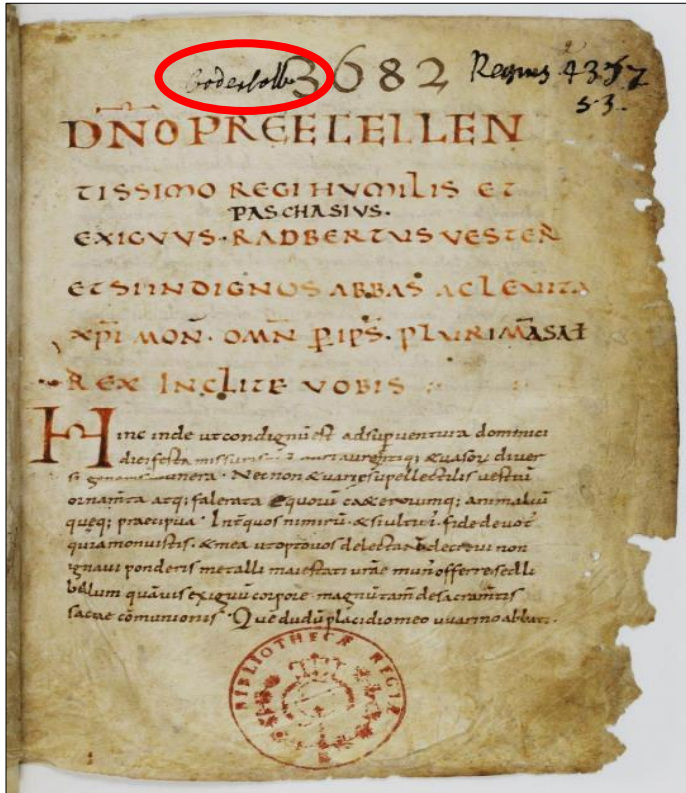 Codex colb. 3682 Regius 4357
2
53.
DÑO PREELELLEN
TISSIMO REGI HVMILIS ET
PASCHASIVS.
EXIGVVS · RADBERTUS VESTER
ETSI INDIGNUS ABBAS AC LEVITA
XPI MON̄ · OMN̄ P̱IPS̄ · PLVRIMĀ SAŁ
REX INCLITE VOBIS
Hinc inde ut condignū est ad supventura dominici
diei festa
munera · Nec non & varie supellectilis vestiū
ornam̄ta atq; falerata equorū cæterorumq; animaliū
queq; praecipua ·
quia monuistis · & mea ut opto vos delectar& decrevi non
ignavi ponderis metalli maiestati vr̄ae mun̄ offerre sed li
bellum quāvis exiguū corpore magnū tam̄ de sacram̄tis
sacrae cōmunionis · Que dudū placidio meo vuarino abbati ·
BIBLIOTHECÆ REGIÆ